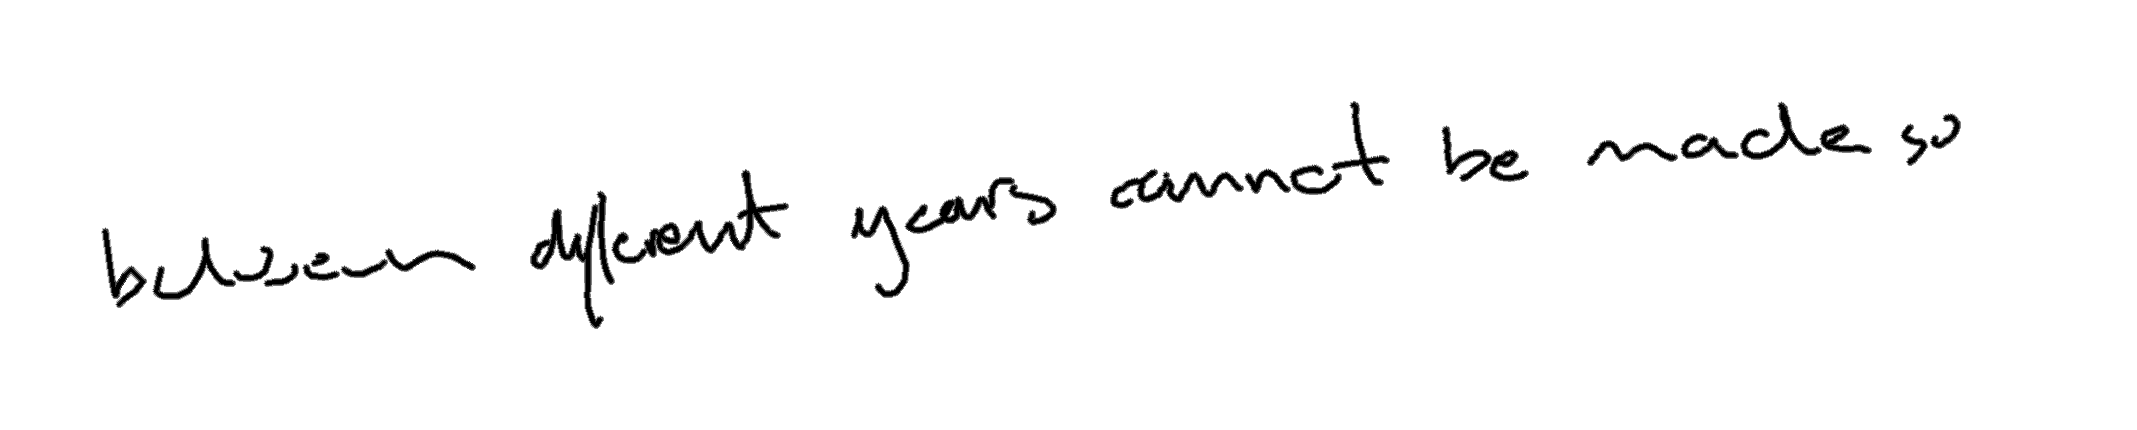 between different years cannot be made so